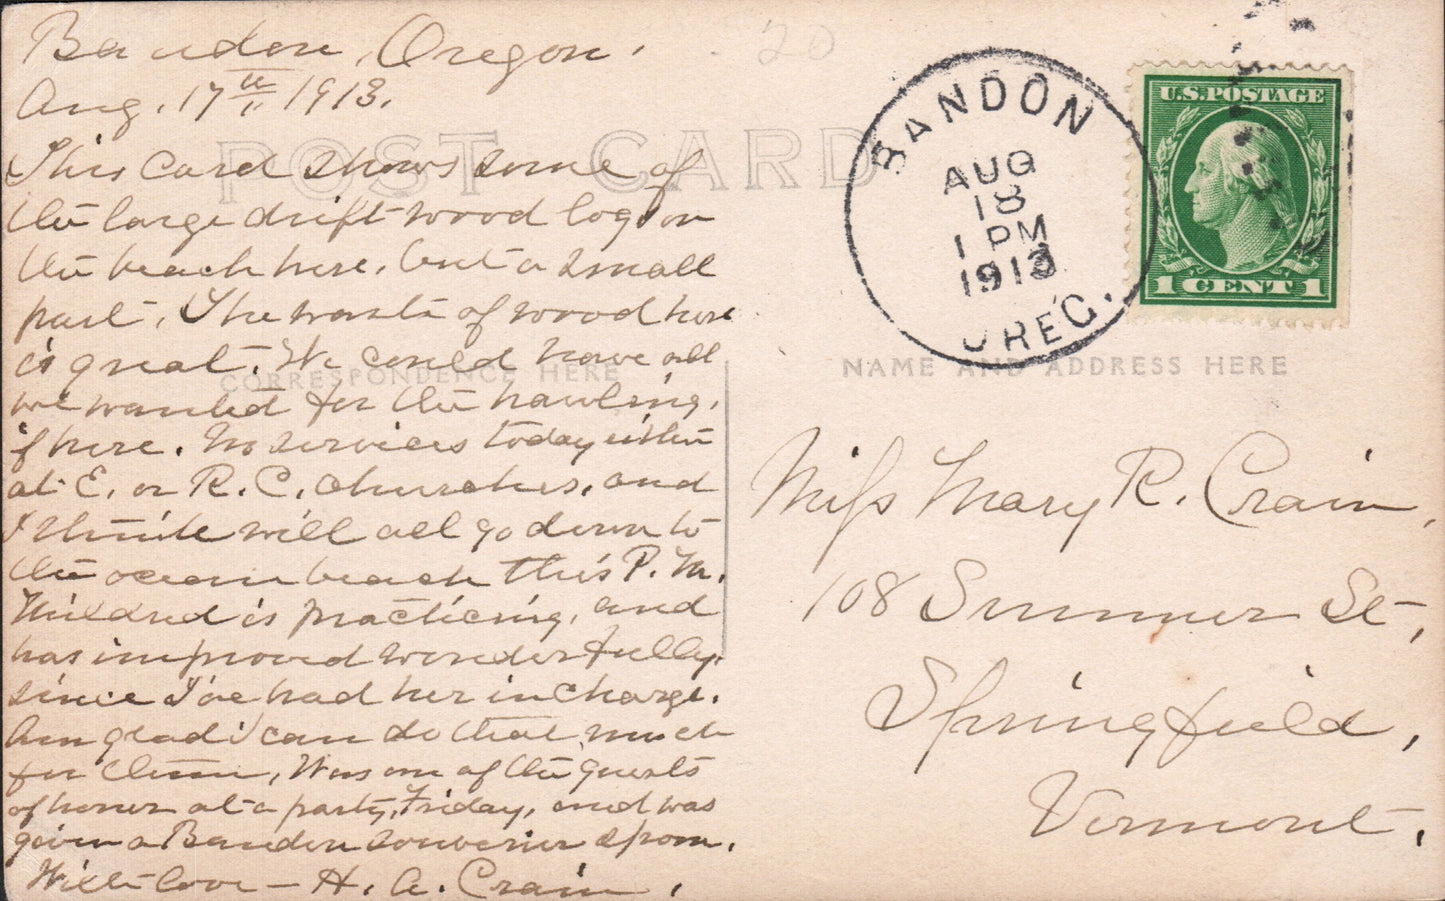 Bandon, Oregon.
Aug. 17th 1913.
This card shows some of
the large drift-wood logs on
the beach here, but a small
part. The waste of wood here
is great. We could have all
we wanted for the hauling,
if here. No services today either
at E. or R. C. churches, and
I think will all go down to
the ocean beach this P. M.
Mildred is practicing, and
has improved wonderfully
since I've had her in charge.
Am glad I can do that much
for them. Was one of the guests
of honor at a party, Friday, and was
given a Bandon souvenir spoon.
With love - H. A. Crain.
POST CARD
CORRESPONDENCE HERE
20
BANDON
AUG
18
1 PM
1913
OREG.
U.S. POSTAGE
1 CENT 1
NAME AND ADDRESS HERE
Miss Mary R. Crain,
108 Summer St,
Springfield,
Vermont.